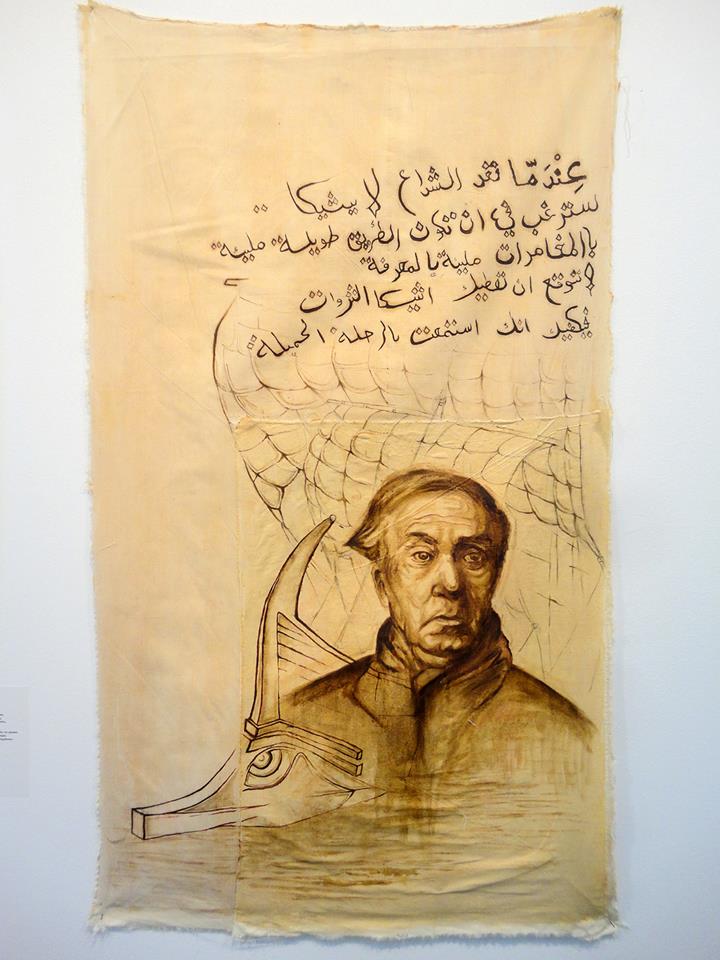 عِنْدَمّا تفد الشراع لا يثيكا
ستر غب في ان تكون الطريق طويلة مليئة
بالمغامرات مليئة بالمعرفة
لاتتوقع ان تعطيك اثيكا الثروات
انك استمتعت بالرحلة الجميلة